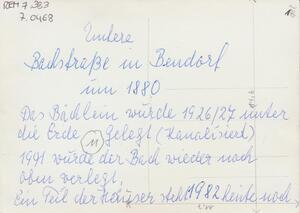 REM 7.383
7.0468
Untere
Bachstraße in Bendorf
um 1880
Das Bächlein wurde 1926/27 unter
die Erde gelegt (Kanalisiert)
1991 wurde der Bach wieder nach
oben verlegt.
Ein Teil der Häuser steht 1982 heute noch.